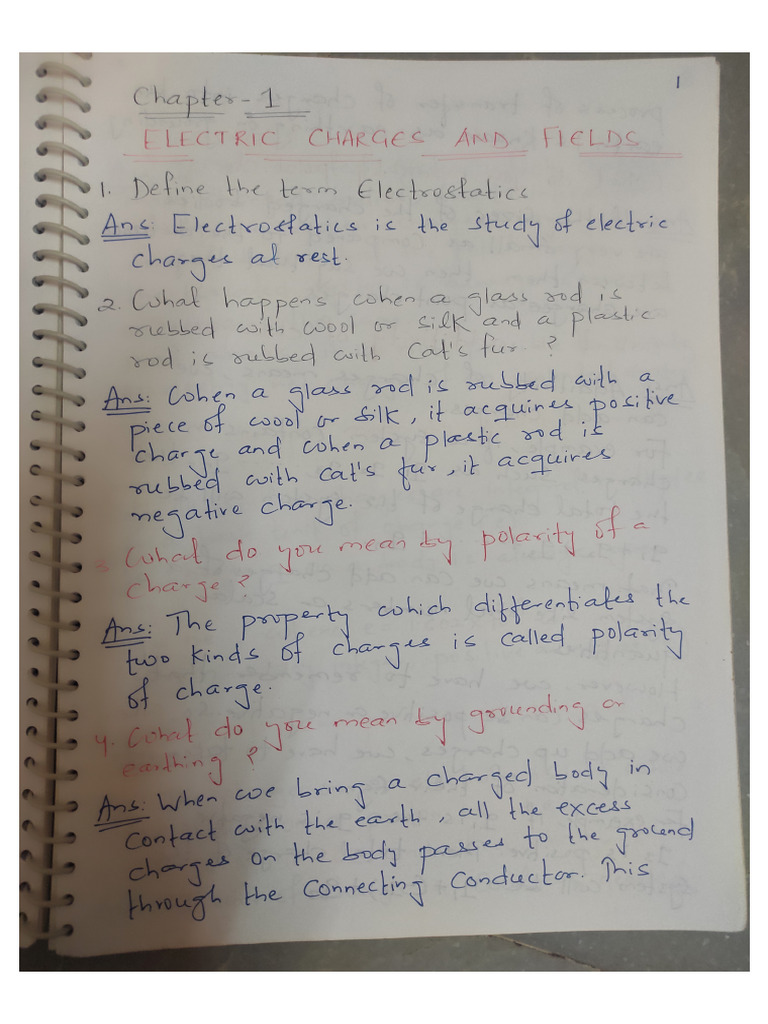 1
Chapter-1
ELECTRIC CHARGES AND FIELDS
1. Define the term Electrostatics
Ans: Electrostatics is the study of electric
charges at rest.
2. What happens when a glass rod is
rubbed with wool or silk and a plastic
rod is rubbed with Cat's fur ?
Ans: When a glass rod is rubbed with a
piece of wool or silk, it acquires positive
charge and when a plastic rod is
rubbed with Cat's fur, it acquires
negative charge.
3. What do you mean by polarity of a
charge ?
Ans: The property which differentiates the
two kinds of charges is called polarity
of charge.
4. What do you mean by grounding or
earthing ?
Ans: When we bring a charged body in
Contact with the earth, all the excess
charges on the body passes to the ground
through the Connecting Conductor. This